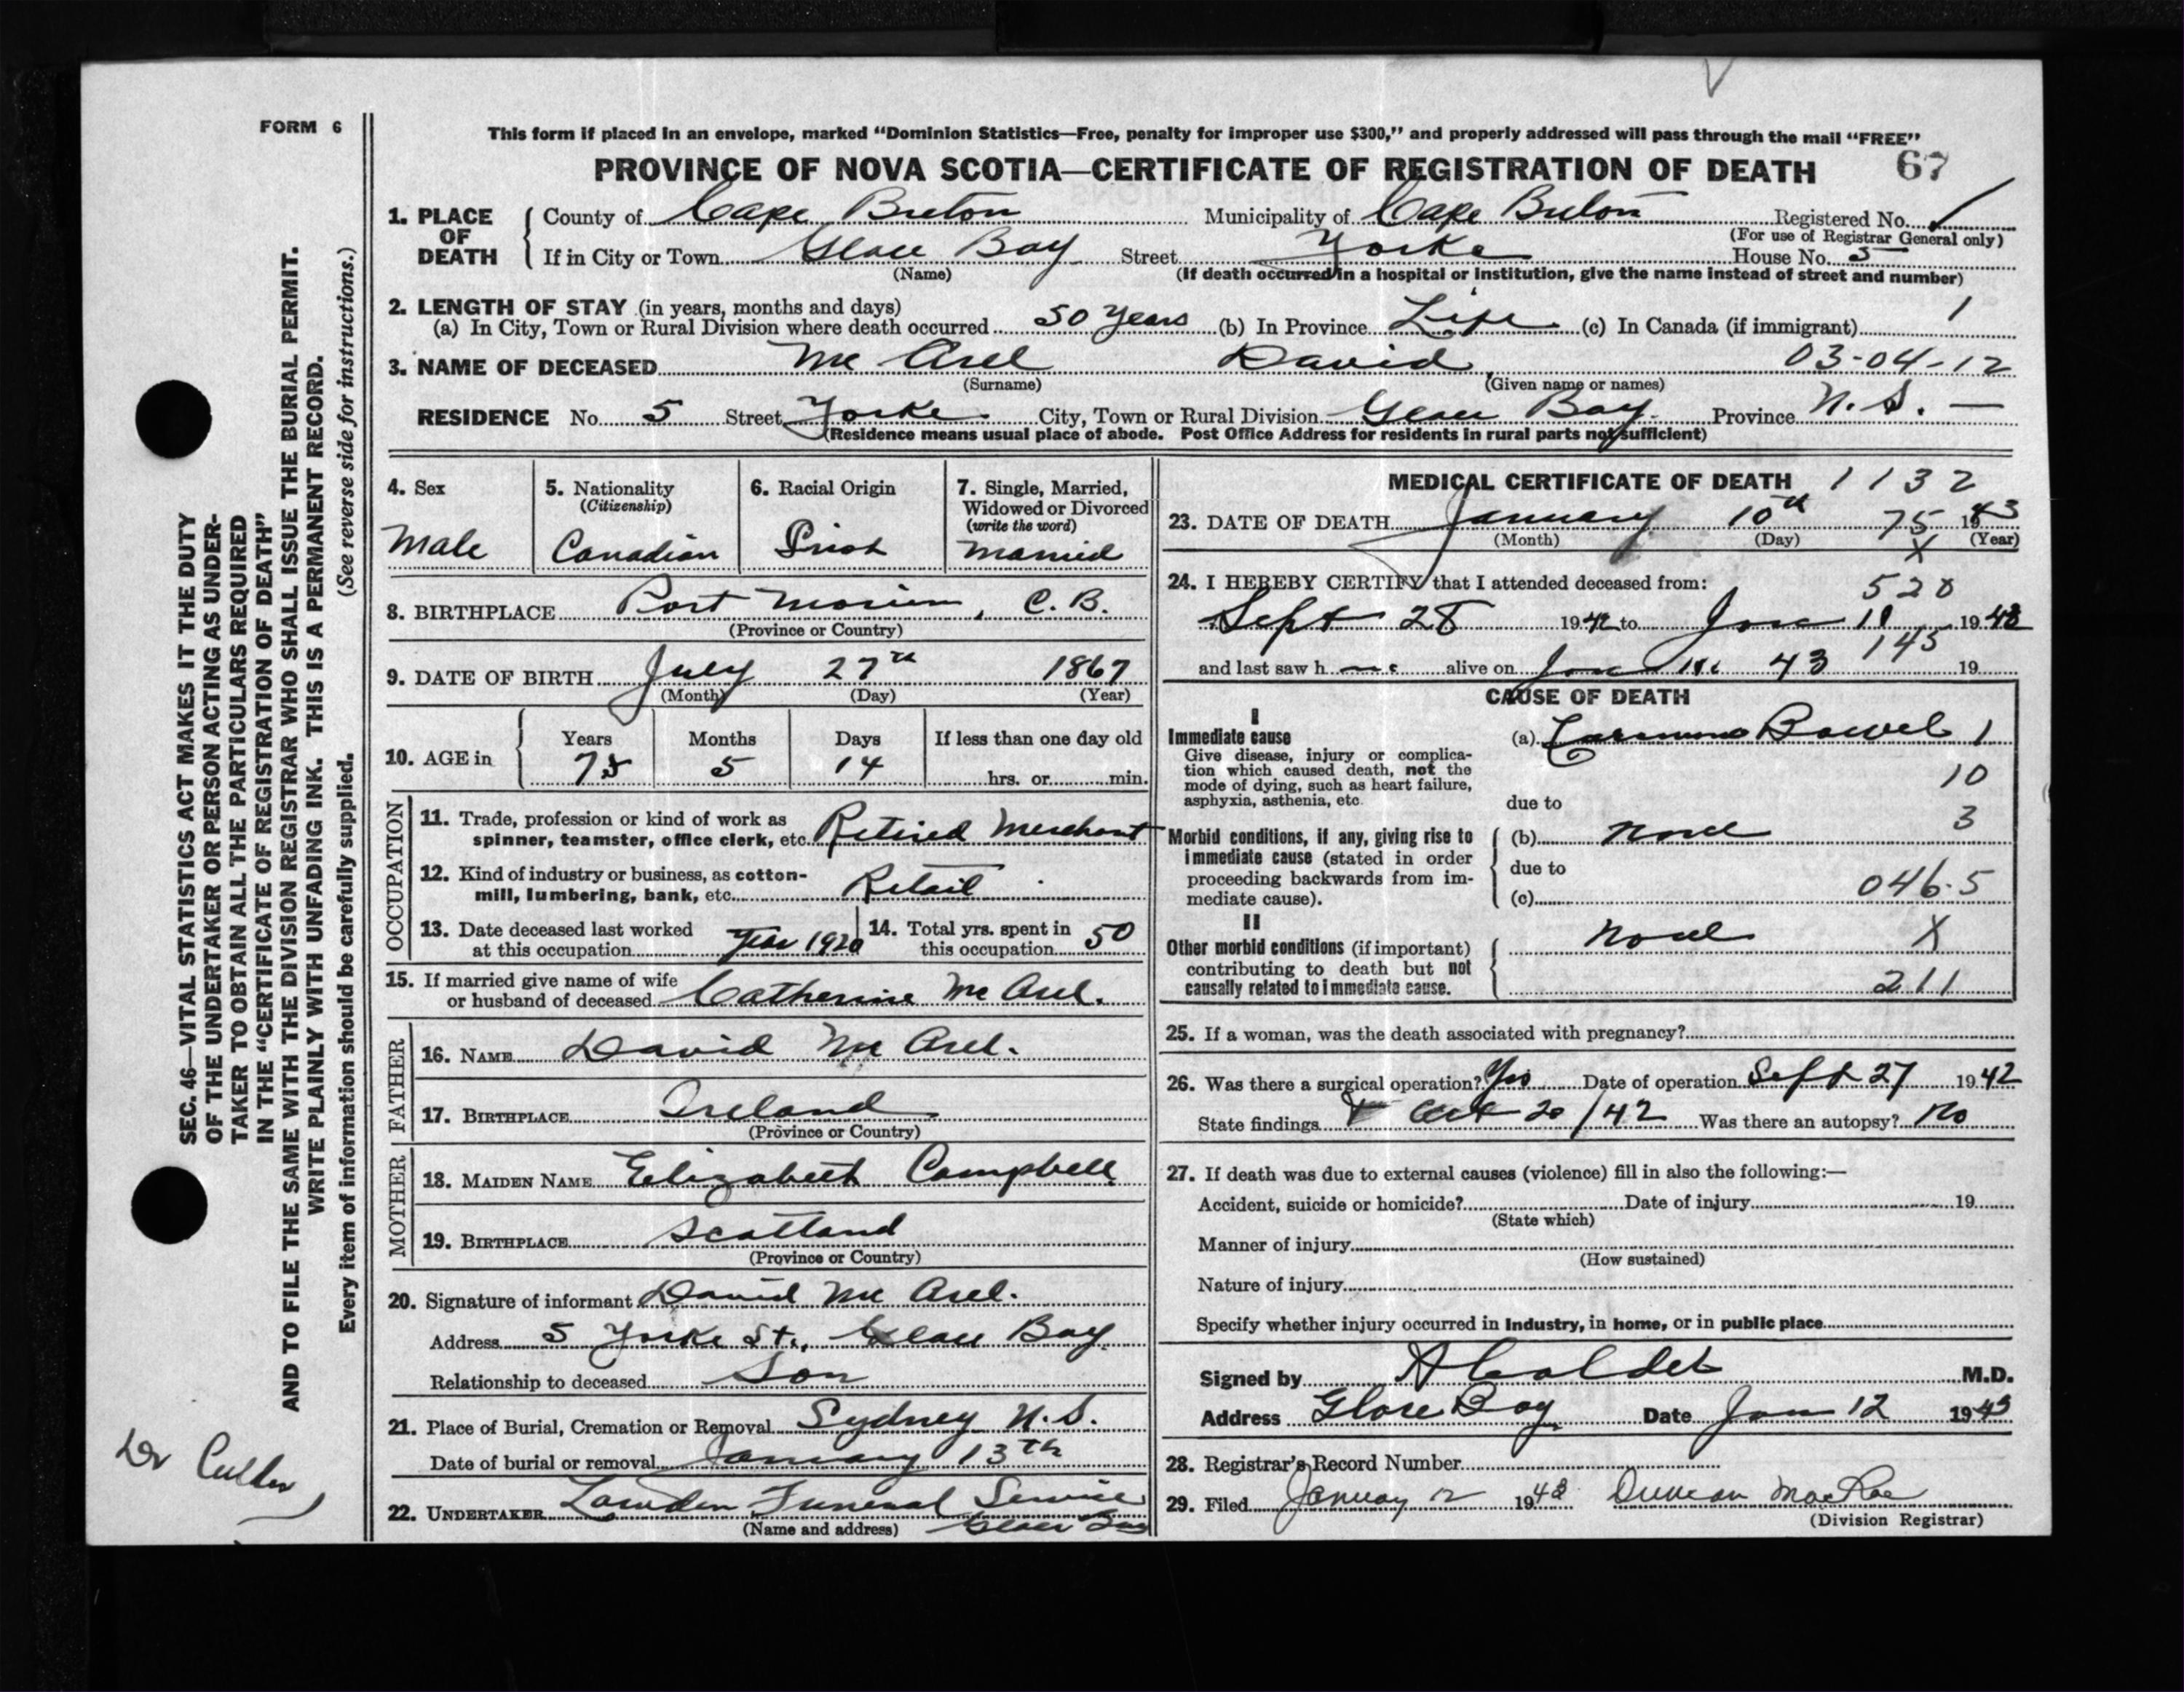 FORM 6
This form if placed in an envelope, marked "Dominion Statistics—Free, penalty for improper use $300," and properly addressed will pass through the mail "FREE"
PROVINCE OF NOVA SCOTIA—CERTIFICATE OF REGISTRATION OF DEATH 67
1. PLACE OF DEATH
County of Cape Breton Municipality of Cape Breton Registered No.
(For use of Registrar General only)
If in City or Town Glace Bay Street Yorke House No. 5
(Name) (If death occurred in a hospital or institution, give the name instead of street and number)
2. LENGTH OF STAY (in years, months and days)
(a) In City, Town or Rural Division where death occurred 50 years (b) In Province Life (c) In Canada (if immigrant) 1
3. NAME OF DECEASED Mc Arel David 03-04-12
(Surname) (Given name or names)
RESIDENCE No. 5 Street Yorke City, Town or Rural Division Glace Bay Province N.S. —
(Residence means usual place of abode. Post Office Address for residents in rural parts not sufficient)
4. Sex
Male
5. Nationality
(Citizenship)
Canadian
6. Racial Origin
Irish
7. Single, Married,
Widowed or Divorced
(write the word)
Married
8. BIRTHPLACE Port Morien, C.B.
(Province or Country)
9. DATE OF BIRTH July 27th 1867
(Month) (Day) (Year)
10. AGE in
Years Months Days If less than one day old
75 5 14 hrs. or min.
OCCUPATION
11. Trade, profession or kind of work as
spinner, teamster, office clerk, etc. Retired Merchant
12. Kind of industry or business, as cotton-
mill, lumbering, bank, etc. Retail
13. Date deceased last worked
at this occupation Year 1920
14. Total yrs. spent in
this occupation 50
15. If married give name of wife
or husband of deceased Catherine Mc Arel.
FATHER
16. NAME David Mc Arel.
17. BIRTHPLACE Ireland
(Province or Country)
MOTHER
18. MAIDEN NAME Elizabeth Campbell
19. BIRTHPLACE Scotland
(Province or Country)
20. Signature of informant David Mc Arel.
Address 5 Yorke St., Glace Bay
Relationship to deceased Son
21. Place of Burial, Cremation or Removal Sydney N.S.
Date of burial or removal January 13th
22. UNDERTAKER Lowden Funeral Service
(Name and address) Glace Bay
MEDICAL CERTIFICATE OF DEATH 1132
23. DATE OF DEATH January 10th 75 1943
(Month) (Day) X (Year)
24. I HEREBY CERTIFY that I attended deceased from: 520
Sept 28 1942 to Jan 11 1943
and last saw h alive on Jan 43 145 19
CAUSE OF DEATH
I
Immediate cause
Give disease, injury or complica-
tion which caused death, not the
mode of dying, such as heart failure,
asphyxia, asthenia, etc.
(a) Bowel 1
10
due to
3
Morbid conditions, if any, giving rise to
immediate cause (stated in order
proceeding backwards from im-
mediate cause).
(b) None
due to
046.5
(c)
II
Other morbid conditions (if important)
contributing to death but not
causally related to immediate cause.
None X
211
25. If a woman, was the death associated with pregnancy?
26. Was there a surgical operation? Yes Date of operation Sept 27 1942
State findings & Oct 20/42 Was there an autopsy? No
27. If death was due to external causes (violence) fill in also the following:—
Accident, suicide or homicide? Date of injury 19
(State which)
Manner of injury
(How sustained)
Nature of injury
Specify whether injury occurred in Industry, in home, or in public place
Signed by A Calder M.D.
Address Glace Bay Date Jan 12 1943
28. Registrar's Record Number
29. Filed January 12 1943 Duncan MacRae
(Division Registrar)
SEC. 46—VITAL STATISTICS ACT MAKES IT THE DUTY
OF THE UNDERTAKER OR PERSON ACTING AS UNDER-
TAKER TO OBTAIN ALL THE PARTICULARS REQUIRED
IN THE "CERTIFICATE OF REGISTRATION OF DEATH"
AND TO FILE THE SAME WITH THE DIVISION REGISTRAR WHO SHALL ISSUE THE BURIAL PERMIT.
WRITE PLAINLY WITH UNFADING INK. THIS IS A PERMANENT RECORD.
Every item of information should be carefully supplied. (See reverse side for instructions.)
Dr Calder